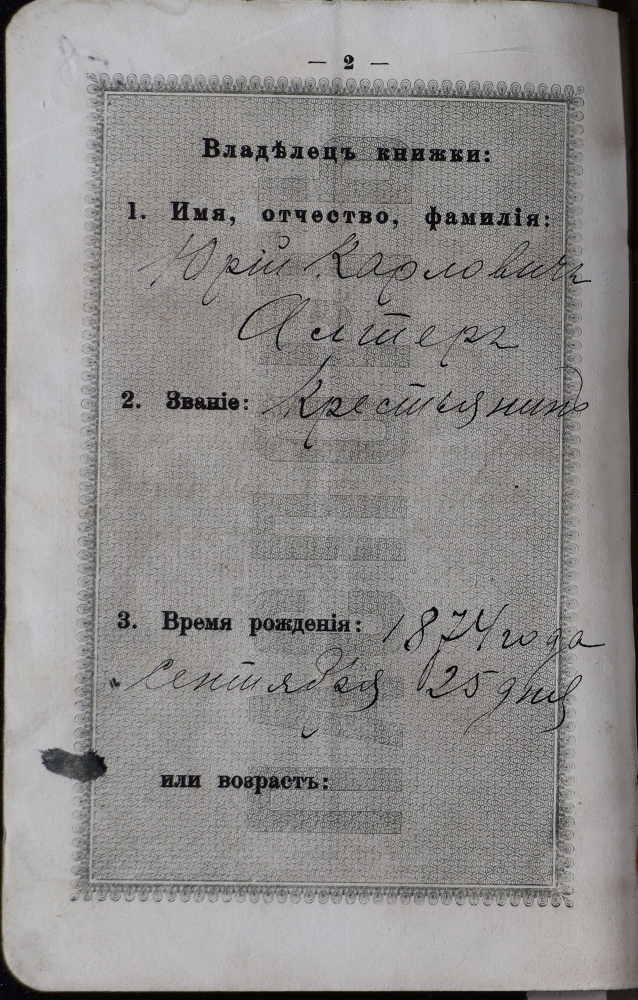 — 2 —
Владѣлецъ книжки:
1. Имя, отчество, фамилія:
Юрій Карловичъ
Алтеръ
2. Званіе: Крестьянинъ
3. Время рожденія: 1874 года
Сентября 25 дня
или возрастъ: